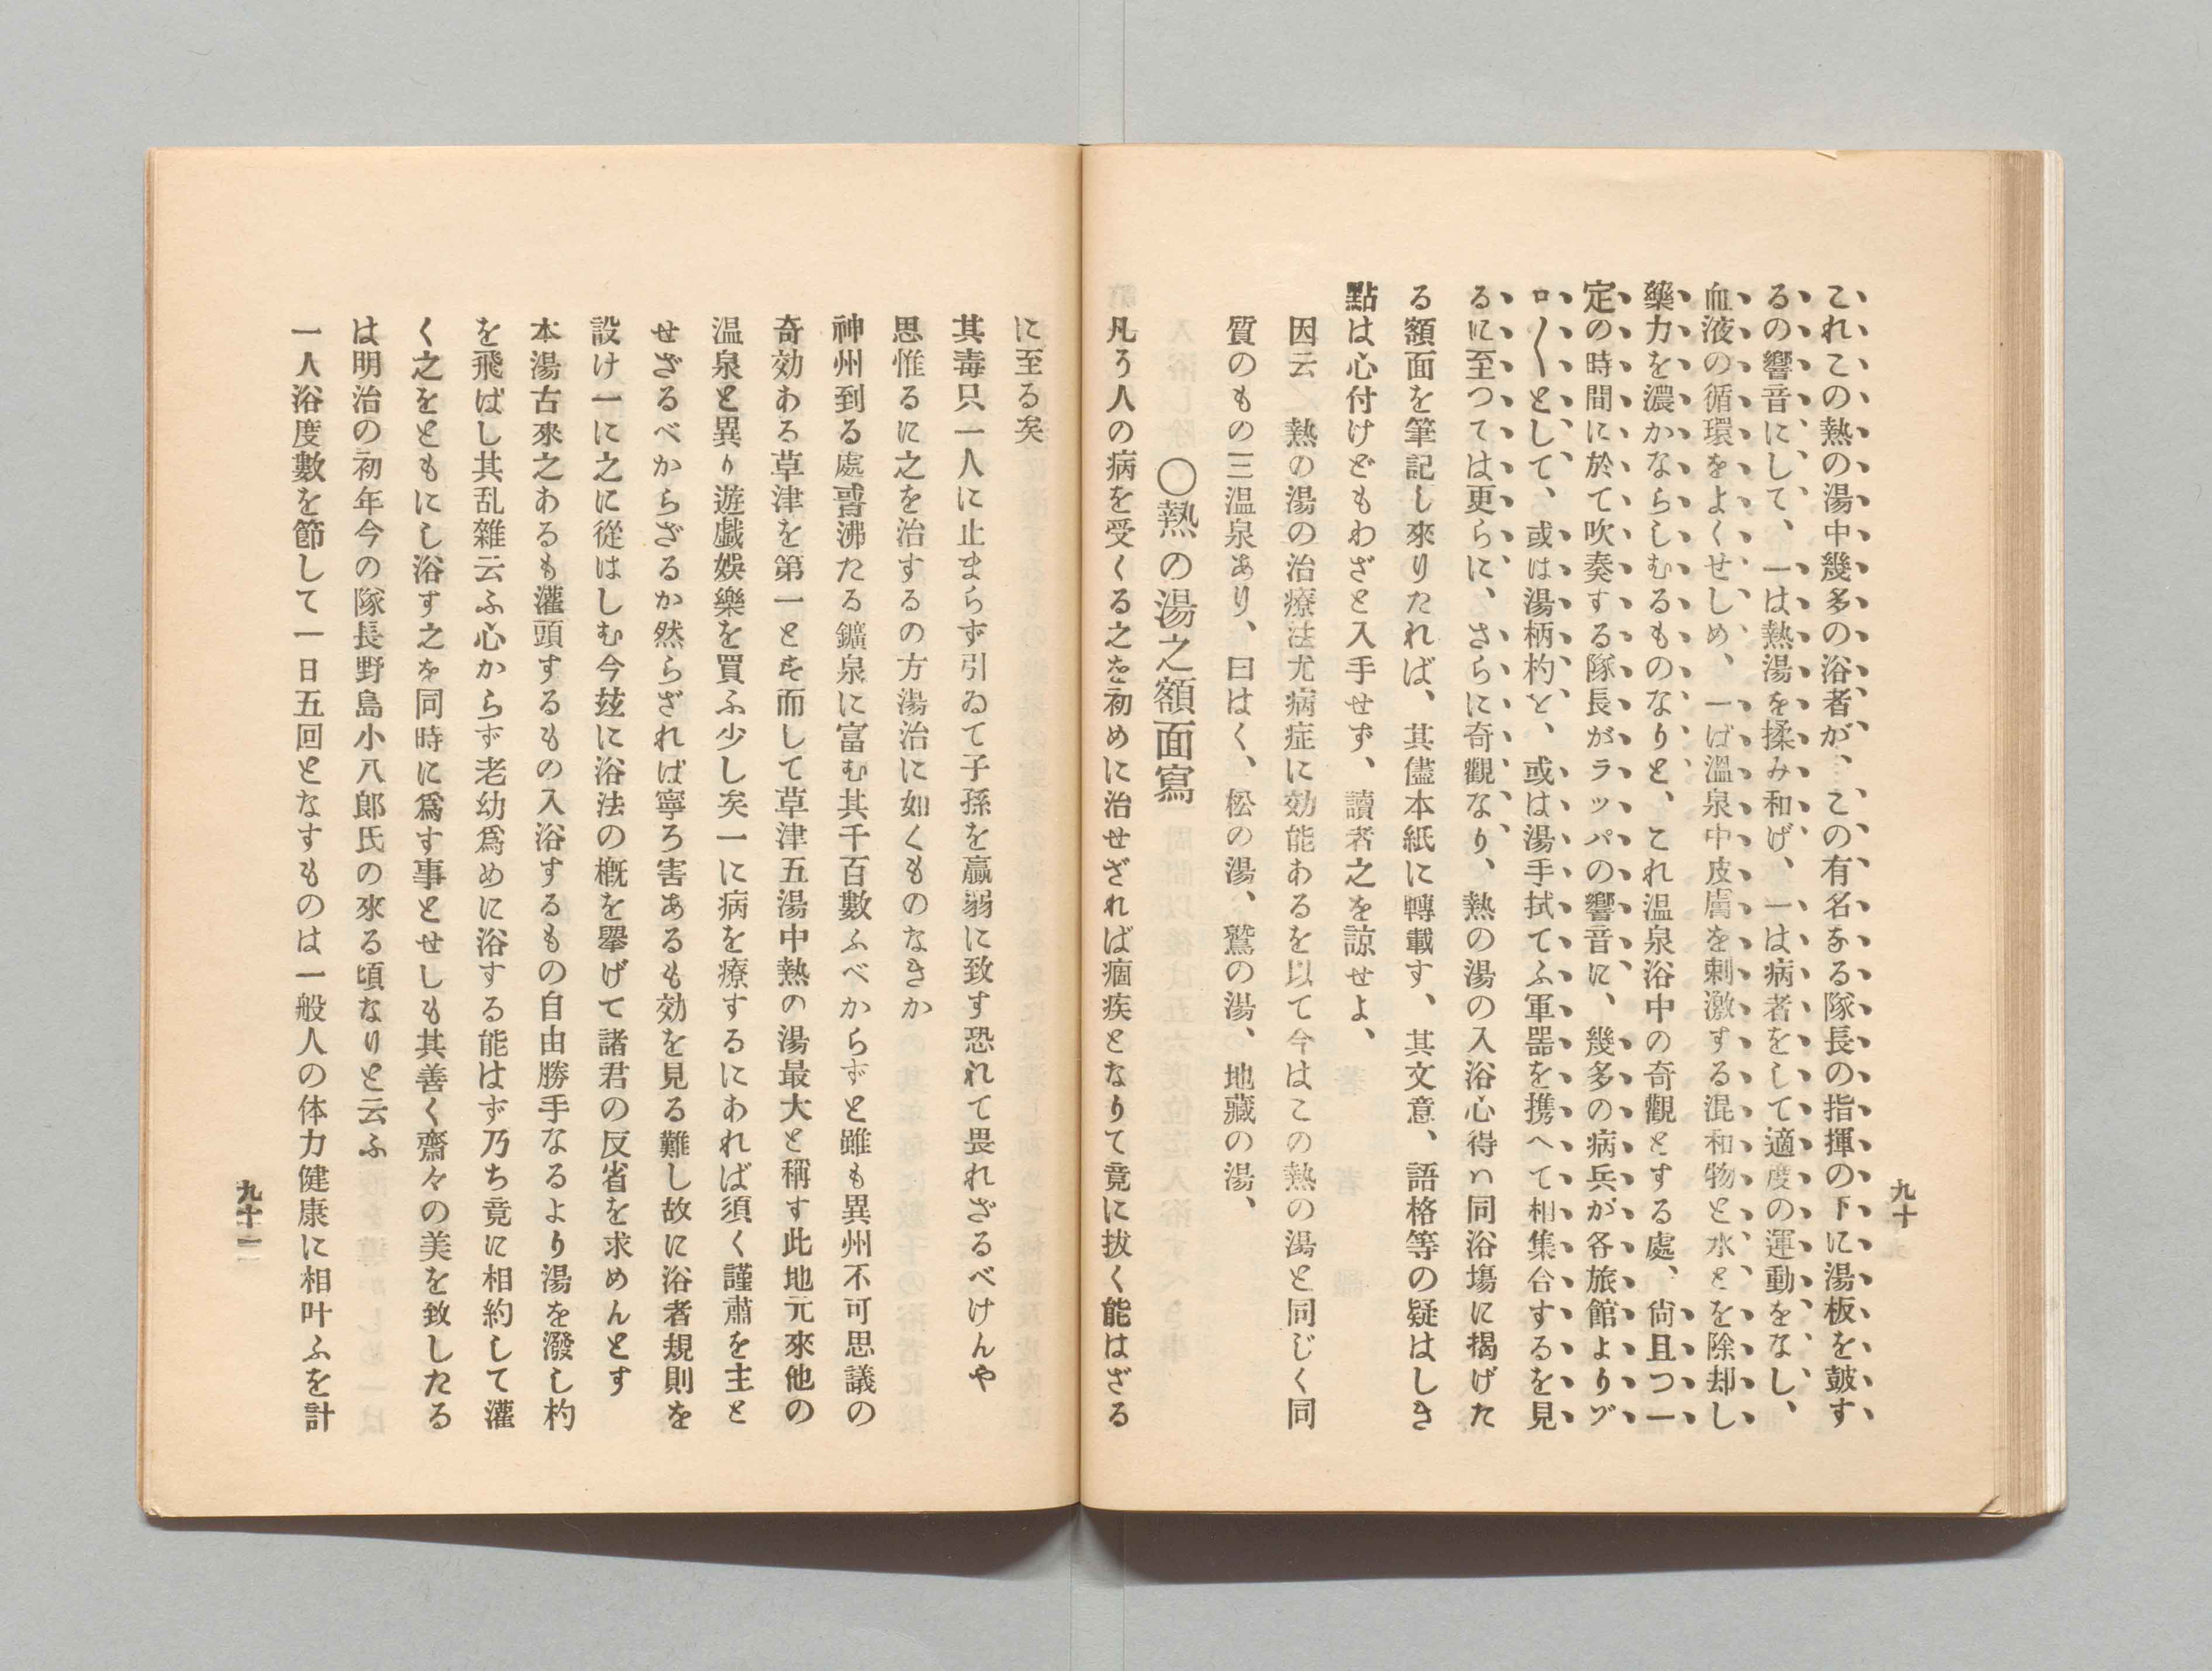 九十
これこの熱の湯中幾多の浴者が、この有名なる隊長の指揮の下に湯板を皷す
るの響音にして、一は熱湯を揉み和げ、一は病者をして適度の運動をなし、
血液の循環をよくせしめ、一ば溫泉中皮膚を刺激する混和物と水とを除却し
藥力を濃かならしむるものなりと、これ温泉浴中の奇觀とする處、尙且つ一
定の時間に於て吹奏する隊長がラッパの響音に、幾多の病兵が各旅館よりゾ
ロ〱として、或は湯柄杓と、或は湯手拭てふ軍器を携へて相集合するを見
るに至つては更らに、さらに奇觀なり、熱の湯の入浴心得ハ同浴塲に揭げた
る額面を筆記し來りたれば、其儘本紙に轉載す、其文意、語格等の疑はしき
點は心付けどもわざと入手せず、讀者之を諒せよ、
因云　熱の湯の治療法尤病症に効能あるを以て今はこの熱の湯と同じく同
質のもの三温泉あり、曰はく、松の湯、鷲の湯、地藏の湯、
〇熱の湯之額面寫
凡ろ人の病を受くる之を初めに治せざれば痼疾となりて竟に拔く能はざる
に至る矣
其毒只一人に止まらず引ゐて子孫を羸弱に致す恐れて畏れざるべけんや
思惟るに之を治するの方湯治に如くものなきか
神州到る處觱沸たる鑛泉に富む其千百數ふべからずと雖も異州不可思議の
奇効ある草津を第一とす而して草津五湯中熱の湯最大と稱す此地元來他の
温泉と異り遊戱娛樂を買ふ少し矣一に病を療するにわれば須く謹肅を主と
せざるべからざるか然らざれば寧ろ害あるも効を見る難し故に浴者規則を
設け一に之に從はしむ今玆に浴法の槪を擧げて諸君の反省を求めんとす
本湯古來之あるも灌頭するもの入浴するもの自由勝手なるより湯を潑し杓
を飛ばし其乱雜云ふ心からず老幼爲めに浴する能はず乃ち竟に相約して灌
く之をともにし浴す之を同時に爲す事とせしも其善く齋々の美を致したる
は明治の初年今の隊長野島小八郎氏の來る頃なりと云ふ
一人浴度數を節して一日五回となすものは一般人の体力健康に相叶ふを計
九十一